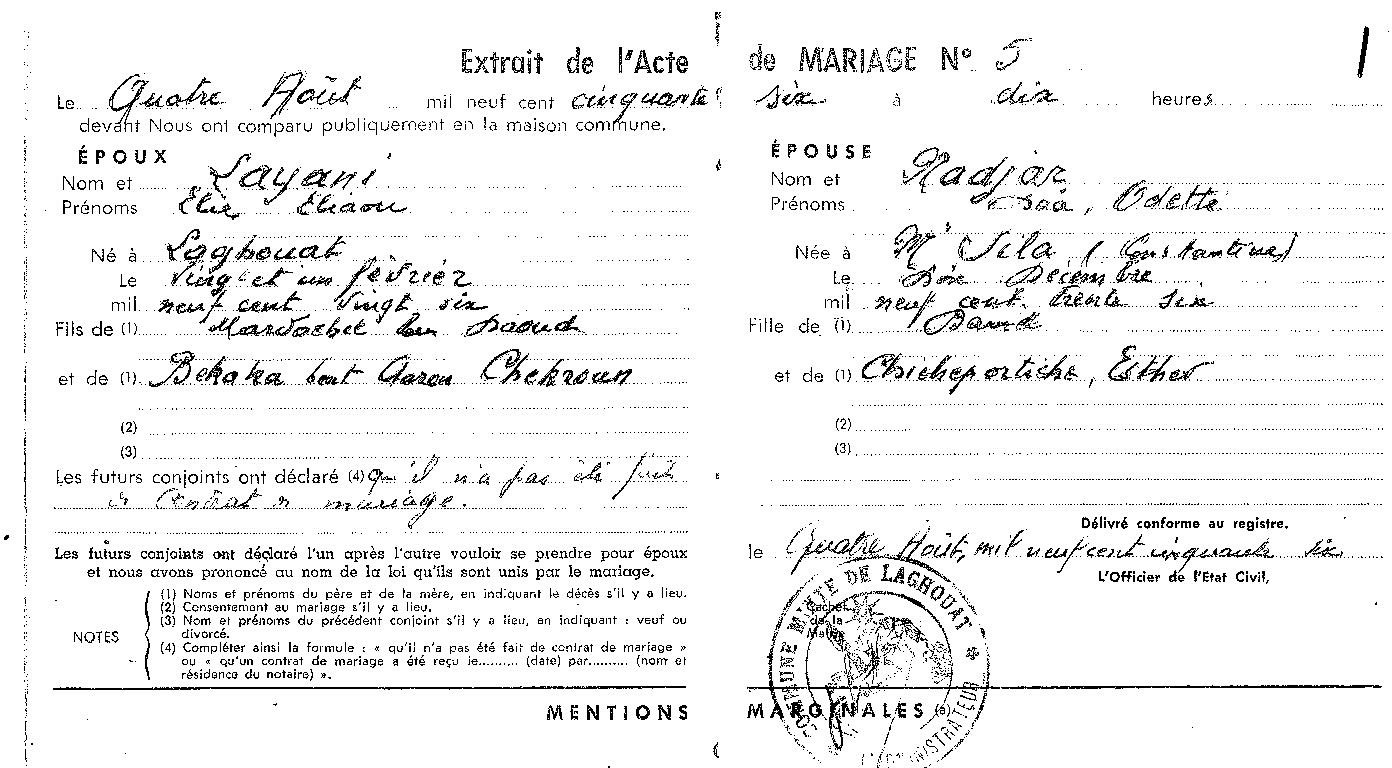 Extrait de l'Acte de MARIAGE N° 5
Le Quatre Août mil neuf cent cinquante six à dix heures
devant Nous ont comparu publiquement en la maison commune.
ÉPOUX
Nom et Layani
Prénoms Elie Eliaou
Né à Laghouat
Le vingt et un février
mil neuf cent vingt six
Fils de (1) Mardochée ben Daoud
et de (1) Bekaka bent Aaron Chekroun
(2)
(3)
Les futurs conjoints ont déclaré (4) qu'il n'a pas été fait
de contrat de mariage.
Les futurs conjoints ont déclaré l'un après l'autre vouloir se prendre pour époux
et nous avons prononcé au nom de la loi qu'ils sont unis par le mariage.
NOTES
(1) Noms et prénoms du père et de la mère, en indiquant le décès s'il y a lieu.
(2) Consentement au mariage s'il y a lieu.
(3) Nom et prénoms du précédent conjoint s'il y a lieu, en indiquant : veuf ou
divorcé.
(4) Compléter ainsi la formule : « qu'il n'a pas été fait de contrat de mariage »
ou « qu'un contrat de mariage a été reçu le......... (date) par.......... (nom et
résidence du notaire) ».
ÉPOUSE
Nom et Nadjar
Prénoms Odette
Née à M' Sila (Constantine)
Le Décembre
mil neuf cent trente six
Fille de (1) David
et de (1) Chicheportiche, Esther
(2)
(3)
Délivré conforme au registre.
le Quatre Août, mil neuf cent cinquante six
L'Officier de l'Etat Civil,
COMMUNE MIXTE DE LAGHOUAT
L'ADMINISTRATEUR
Cachet
de la
Mairie
MENTIONS MARGINALES